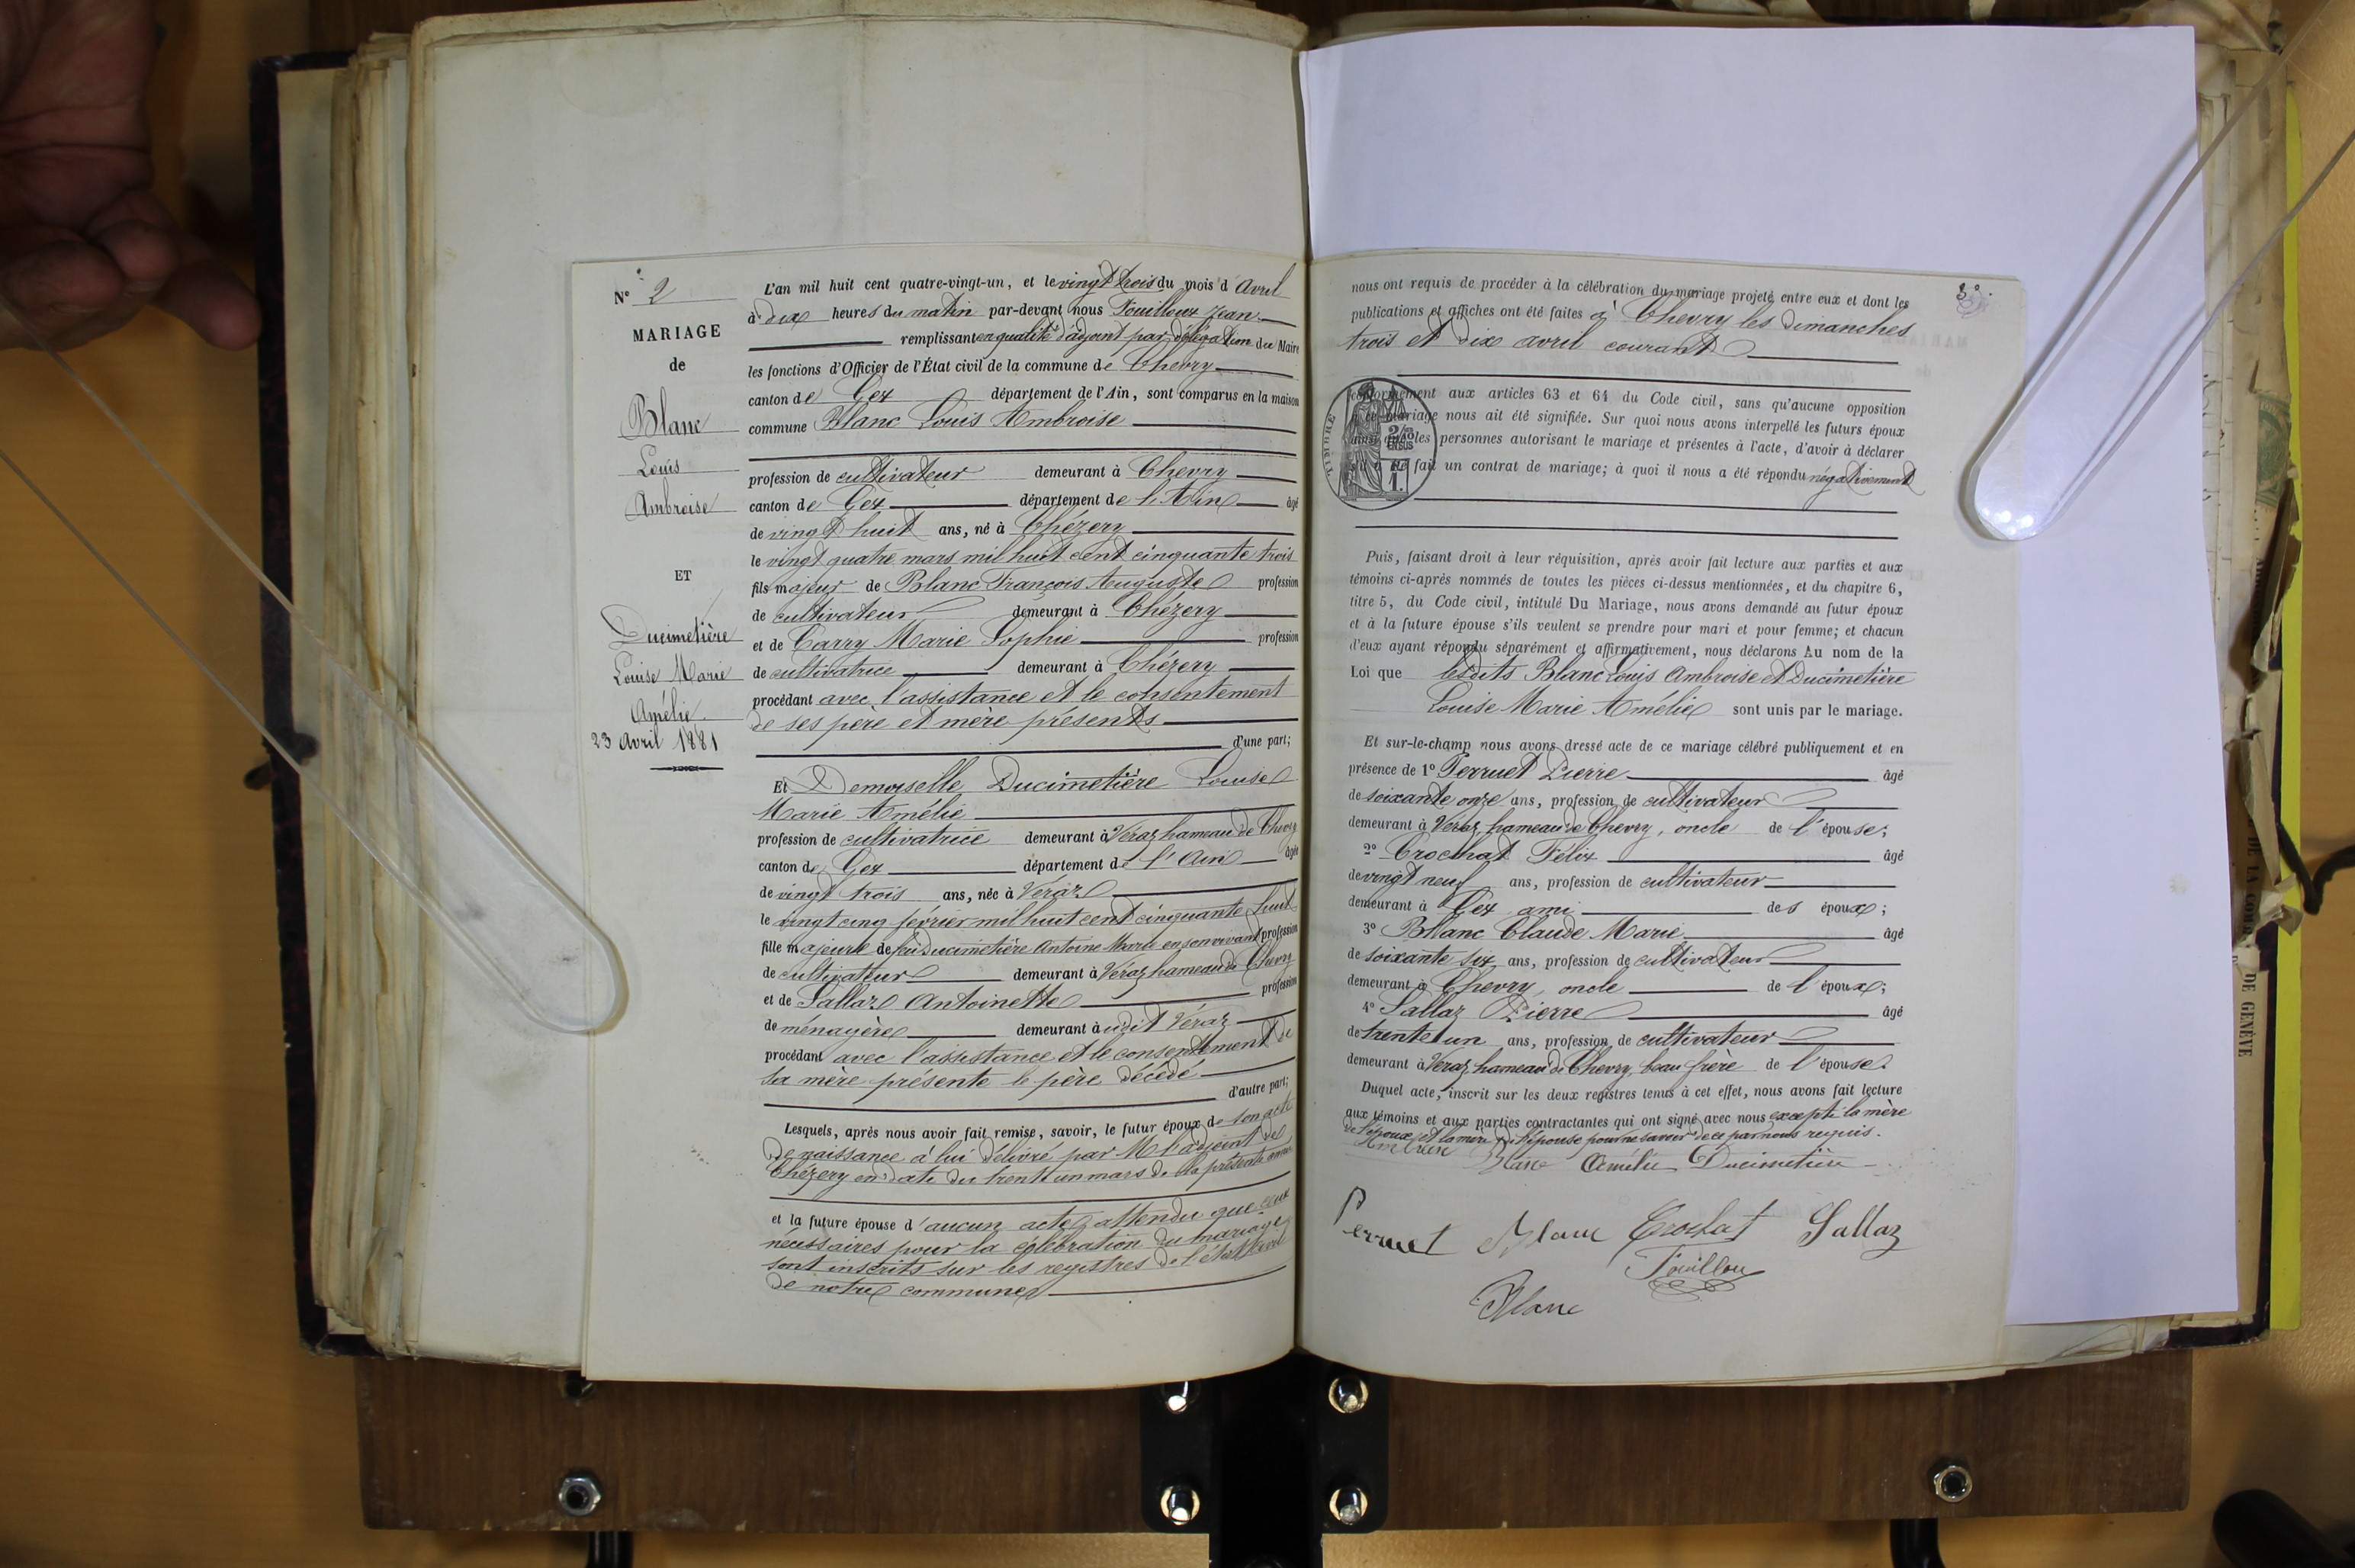 N° 2
MARIAGE
de
Blanc
Louis
Ambroise
ET
Ducimetière
Louise Marie
Amélie
23 Avril 1881
L'an mil huit cent quatre-vingt-un, et le vingt trois du mois d'Avril
à dix heures du matin par-devant nous Fouilloux Jean
remplissant en qualité d'adjoint par délégation du Maire
les fonctions d'Officier de l'État civil de la commune de Chevry
canton de Gex département de l'Ain, sont comparus en la maison
commune Blanc Louis Ambroise
profession de cultivateur demeurant à Chevry
canton de Gex département de l'Ain âgé
de vingt huit ans, né à Chézery
le vingt quatre mars mil huit cent cinquante trois
fils majeur de Blanc François Auguste profession
de cultivateur demeurant à Chézery
et de Carry Marie Sophie profession
de cultivatrice demeurant à Chézery
procédant avec l'assistance et le consentement
de ses père et mère présents
d'une part;
Et Demoiselle Ducimetière Louise
Marie Amélie
profession de cultivatrice demeurant à Véraz hameau de Chevry
canton de Gex département de l'Ain âgée
de vingt trois ans, née à Véraz
le vingt cinq février mil huit cent cinquante huit
fille majeure de feu Ducimetière Antoine Marie en son vivant profession
de cultivateur demeurant à Véraz hameau de Chevry
et de Sallaz Antoinette profession
de ménagère demeurant à udit Véraz
procédant avec l'assistance et le consentement de
sa mère présente le père décédé
d'autre part;
Lesquels, après nous avoir fait remise, savoir, le futur époux de son acte
de naissance à lui délivré par M l'adjoint de
Chézery en date du trente un mars de la présente année
et la future épouse d'aucun acte, attendu que ceux
nécessaires pour la célébration du mariage
sont inscrits sur les registres de l'état civil
de notre commune
nous ont requis de procéder à la célébration du mariage projeté entre eux et dont les
publications et affiches ont été faites à Chevry les dimanches
trois et dix avril courant
conformément aux articles 63 et 64 du Code civil, sans qu'aucune opposition
à ce mariage nous ait été signifiée. Sur quoi nous avons interpellé les futurs époux
ainsi que les personnes autorisant le mariage et présentes à l'acte, d'avoir à déclarer
s'il a été fait un contrat de mariage; à quoi il nous a été répondu négativement
TIMBRE
Puis, faisant droit à leur réquisition, après avoir fait lecture aux parties et aux
témoins ci-après nommés de toutes les pièces ci-dessus mentionnées, et du chapitre 6,
titre 5, du Code civil, intitulé Du Mariage, nous avons demandé au futur époux
et à la future épouse s'ils veulent se prendre pour mari et pour femme; et chacun
d'eux ayant répondu séparément et affirmativement, nous déclarons Au nom de la
Loi que lesdits Blanc Louis Ambroise et Ducimetière
Louise Marie Amélie sont unis par le mariage.
Et sur-le-champ nous avons dressé acte de ce mariage célébré publiquement et en
présence de 1° Perruet Pierre âgé
de soixante onze ans, profession de cultivateur
demeurant à Véraz, hameau de Chevry, oncle de l'épouse;
2° Crochat Félix âgé
de vingt neuf ans, profession de cultivateur
demeurant à Gex ami des époux;
3° Blanc Claude Marie âgé
de soixante six ans, profession de cultivateur
demeurant à Chevry, oncle de l'époux;
4° Sallaz Pierre âgé
de trente un ans, profession de cultivateur
demeurant à Véraz hameau de Chevry, beau frère de l'épouse
Duquel acte, inscrit sur les deux registres tenus à cet effet, nous avons fait lecture
aux témoins et aux parties contractantes qui ont signé avec nous excepté la mère
de l'époux et la mère de l'épouse pour ne savoir de ce par nous requis.
Blanc Amélie Ducimetière
Perruet Blanc Crochat Sallaz
Fouilloux
Blanc
DE GENÈVE